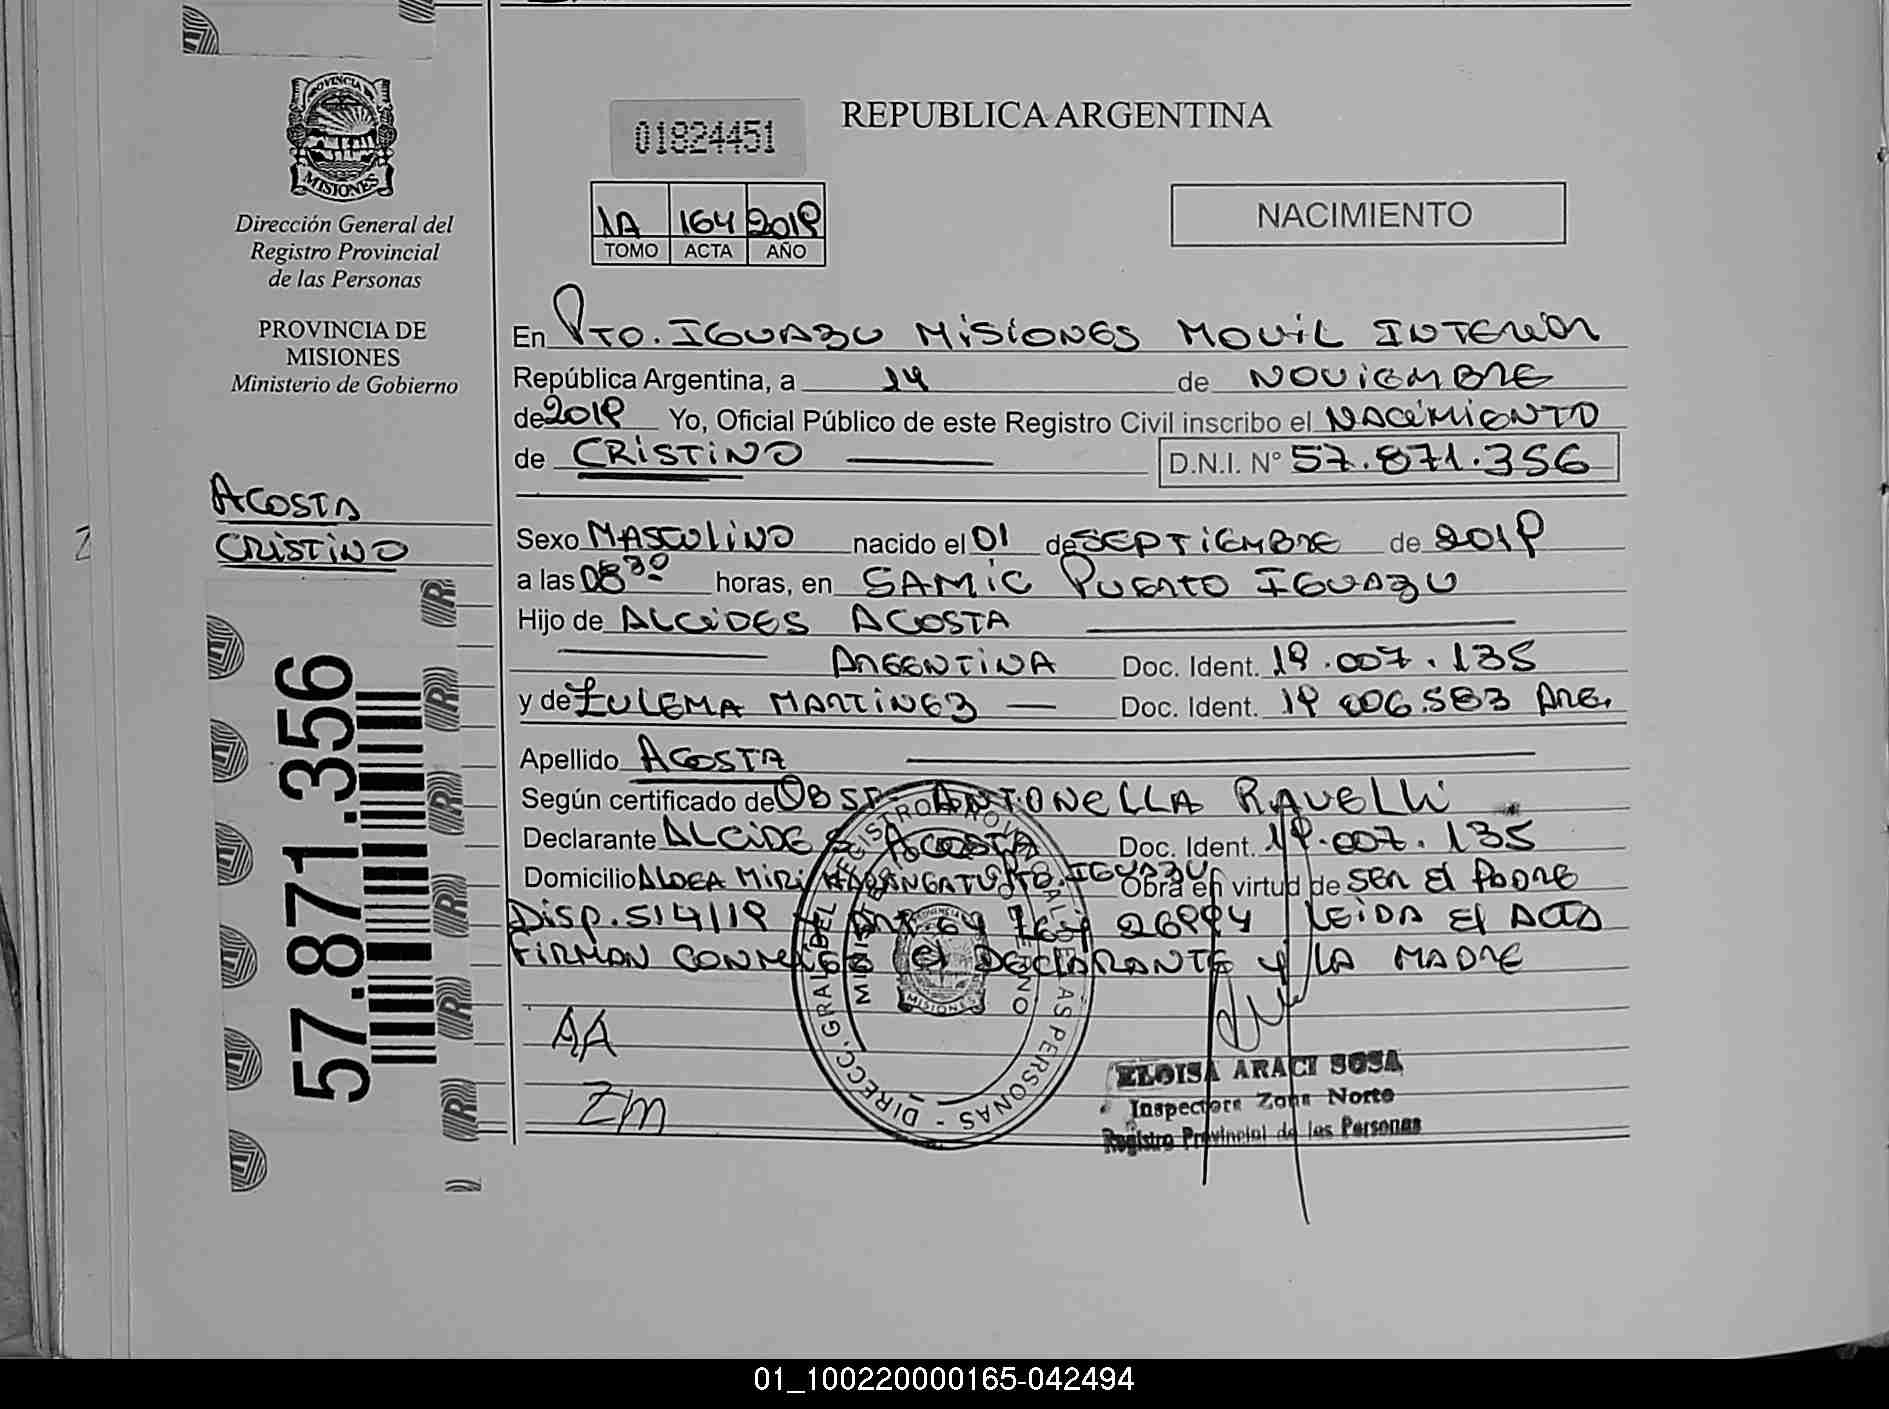 PROVINCIA DE
MISIONES
Dirección General del
Registro Provincial
de las Personas
PROVINCIA DE
MISIONES
Ministerio de Gobierno
ACOSTA
CRISTINO
57.871.356
01824451
REPUBLICA ARGENTINA
1A 164 2019
TOMO ACTA AÑO
NACIMIENTO
En PTO. IGUAZU MISIONES MOVIL INTERIOR
República Argentina, a 14 de NOVIEMBRE
de 2019 Yo, Oficial Público de este Registro Civil inscribo el NACIMIENTO
de CRISTINO D.N.I. N° 57.871.356
Sexo MASCULINO nacido el 01 de SEPTIEMBRE de 2019
a las 08 30 horas, en SAMIC PUERTO IGUAZU
Hijo de ALCIDES ACOSTA
ARGENTINA Doc. Ident. 19.007.135
y de ZULEMA MARTINEZ Doc. Ident. 19 006.583 ARG.
Apellido ACOSTA
Según certificado de OBST ANTONELLA RAVELLI
Declarante ALCIDES ACOSTA Doc. Ident. 19.007.135
Domicilio ALDEA MIRI PTO. IGUAZU Obra en virtud de SER El PADRE
Disp. 514/19 LEIDA El ACTA
FIRMAN CONMIGO El DECLARANTE y LA MADRE
AA
ZM
DIRECC. GRAL. DEL REGISTRO PROVINCIAL DE LAS PERSONAS
MISIONES
ELOISA ARACI SOSA
Inspectora Zona Norte
Registro Provincial de las Personas
01_100220000165-042494